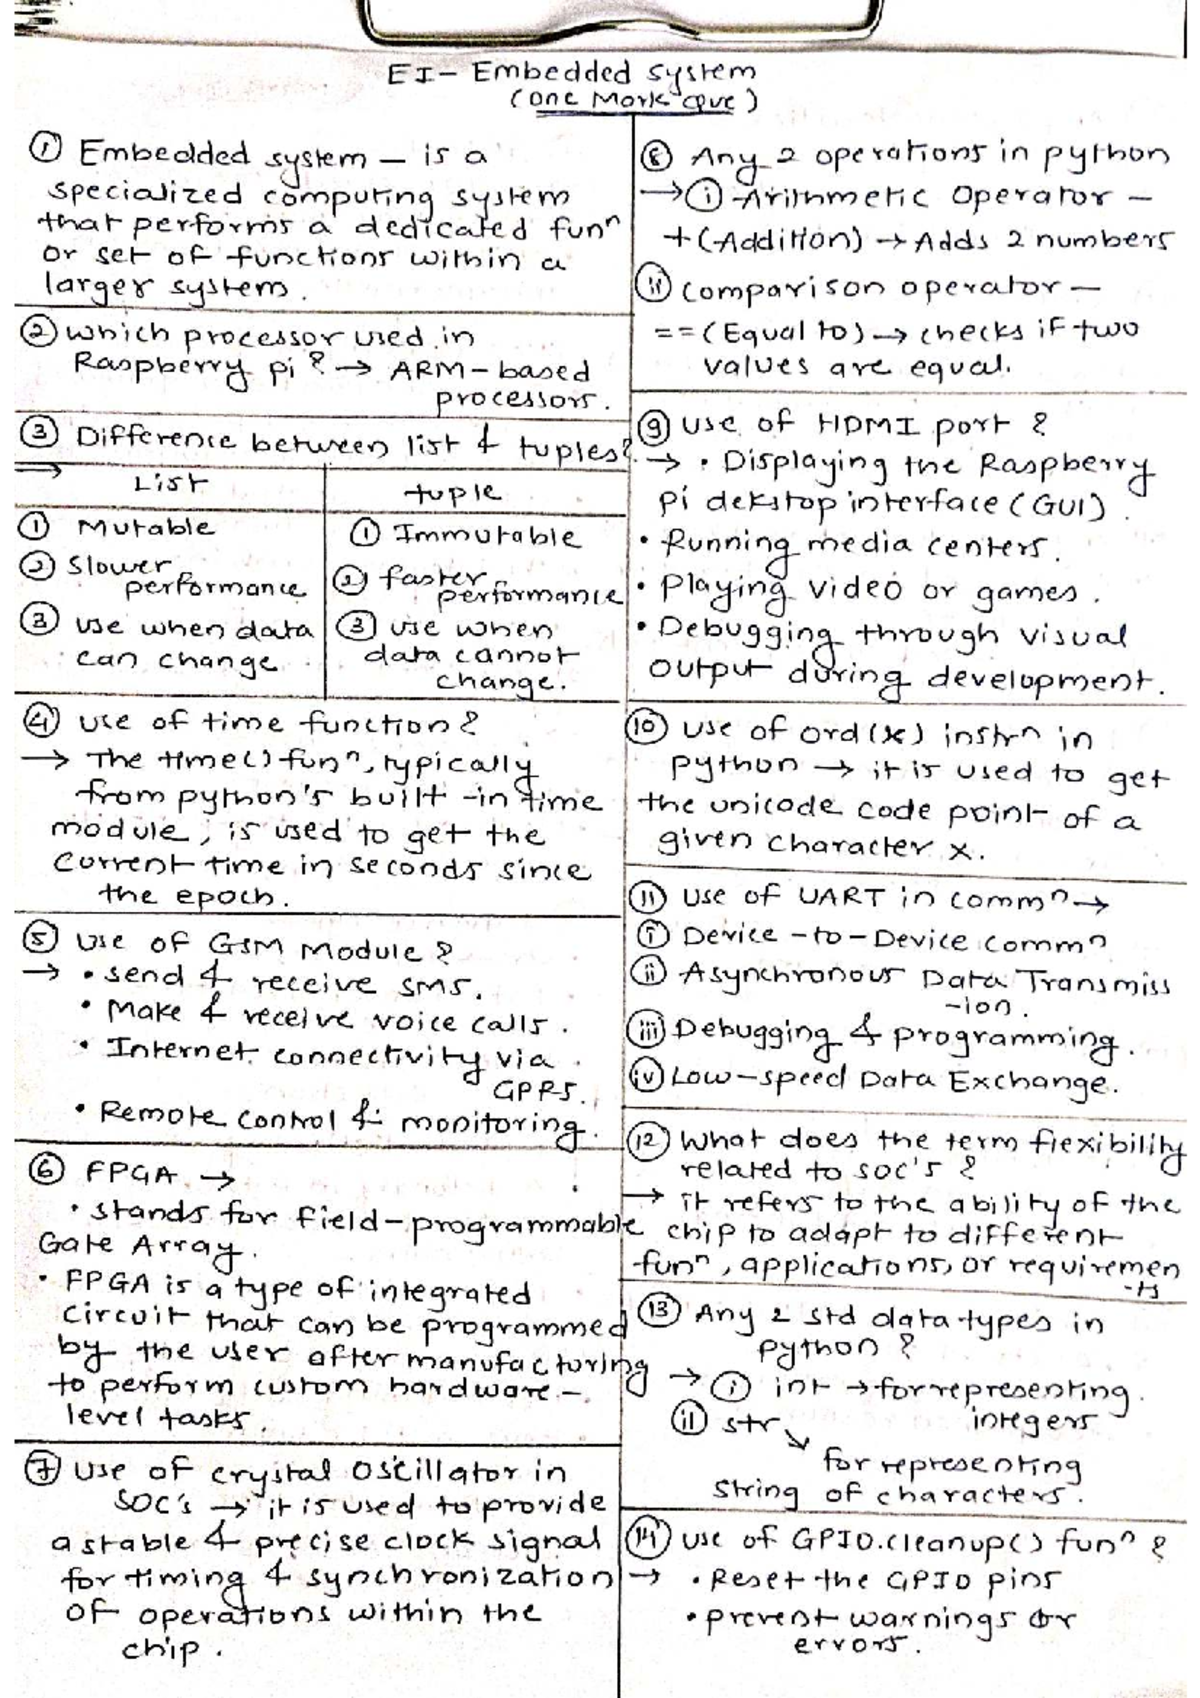 EI - Embedded system
(One Mark Que)
① Embedded system - is a
specialized computing system
that performs a dedicated funⁿ
or set of functions within a
larger system.
② which processor used in
Raspberry pi ? → ARM-based
processors.
③ Difference between list & tuples?
→
List
tuple
① Mutable
① Immutable
② Slower
performance
② faster
performance
③ use when data
can change
③ use when
data cannot
change.
④ use of time function ?
→ The time() funⁿ, typically
from python's built-in time
module, is used to get the
current time in seconds since
the epoch.
⑤ Use of GSM Module ?
→ • send & receive SMS.
• Make & receive voice calls.
• Internet connectivity via
GPRS.
• Remote control & monitoring.
⑥ FPGA →
• stands for field-programmable
Gate Array.
• FPGA is a type of integrated
circuit that can be programmed
by the user after manufacturing
to perform custom hardware-
level tasks.
⑦ Use of crystal oscillator in
SOC's → it is used to provide
a stable & precise clock signal
for timing & synchronization
of operations within the
chip.
⑧ Any 2 operations in python
→ ⓘ Arithmetic Operator -
+ (Addition) → Adds 2 numbers
ⓘⓘ comparison operator -
== (Equal to) → checks if two
values are equal.
⑨ use of HDMI port ?
→ • Displaying the Raspberry
Pi dekstop interface (GUI).
• Running media centers.
• Playing video or games.
• Debugging through visual
output during development.
⑩ use of ord(x) instrⁿ in
python → it is used to get
the unicode code point of a
given character x.
⑪ use of UART in commⁿ →
ⓘ Device-to-Device commⁿ
ⓘⓘ Asynchronous Data Transmiss
-ion.
ⓘⓘⓘ Debugging & programming.
ⓘⓥ Low-speed Data Exchange.
⑫ What does the term flexibility
related to SOC's ?
→ it refers to the ability of the
chip to adapt to different
funⁿ, applications, or requiremen
-ts
⑬ Any 2 std data types in
python ?
→ ⓘ int → for representing
integers
ⓘⓘ str ↘
for representing
string of characters.
⑭ use of GPIO.cleanup() funⁿ ?
→ • Reset the GPIO pins
• prevent warnings or
errors.